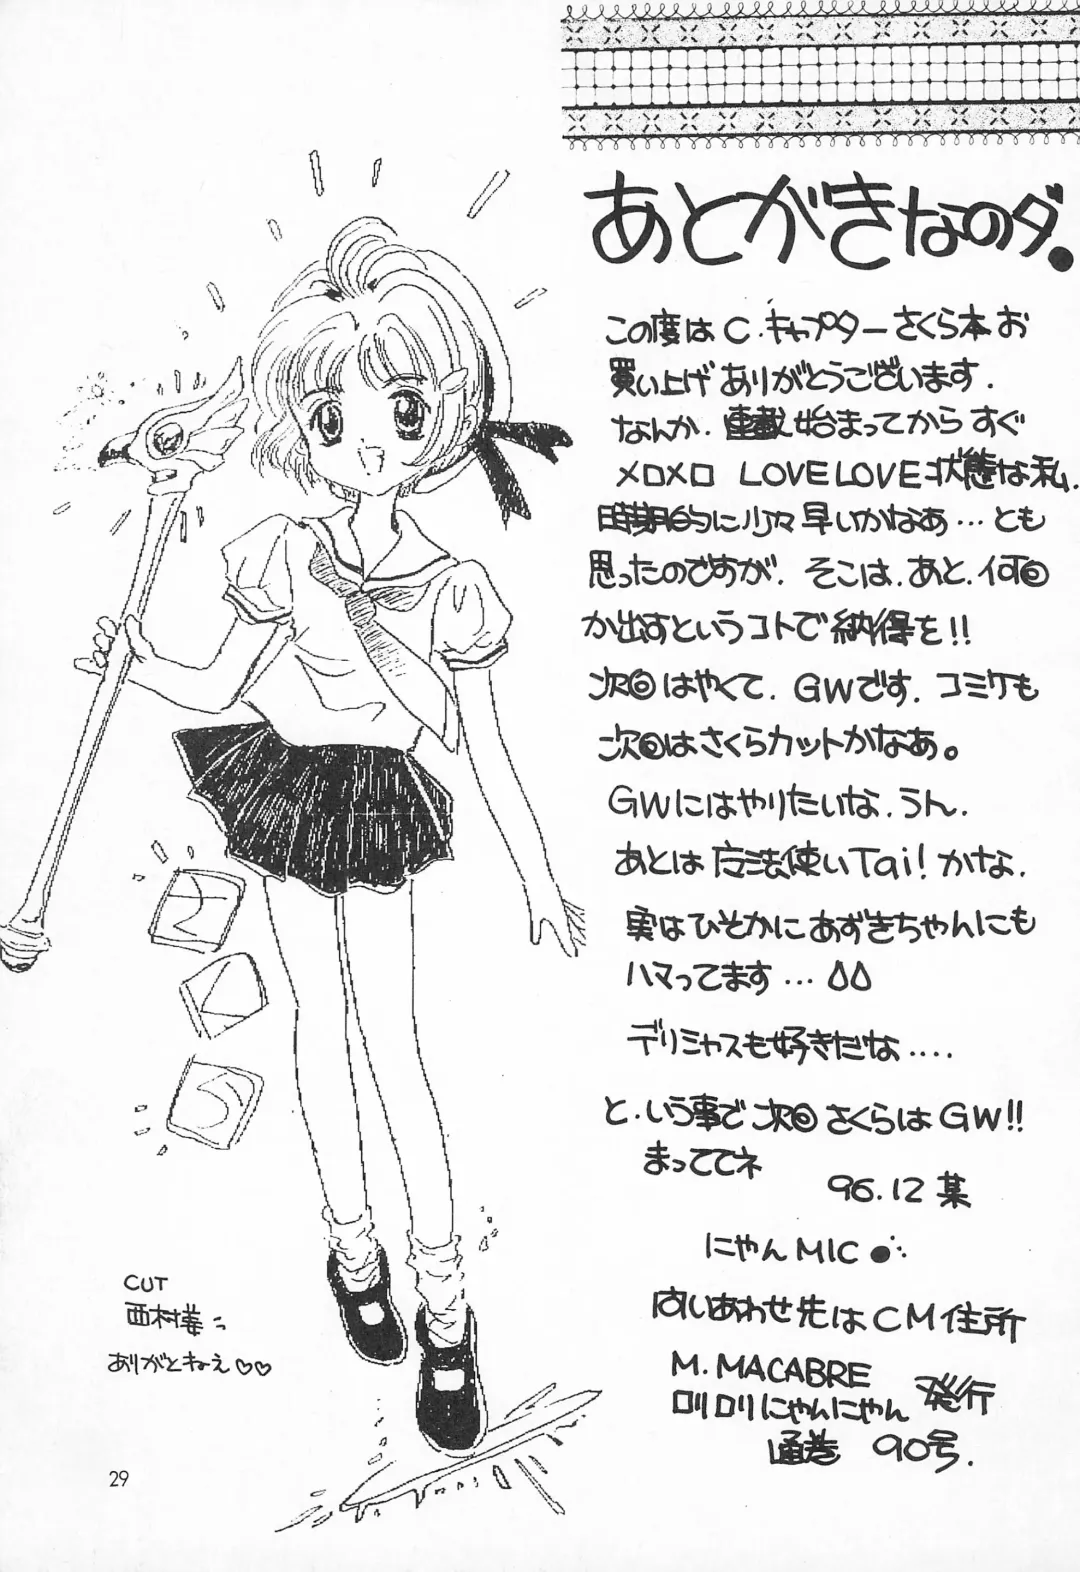 あとがきなのダ.
この度は C.キャプターさくら本お
買い上げ ありがとうございます.
なんか. 連載始まってから すぐ
メロメロ LOVELOVE状態な私.
時期的に少々 早いかなあ…とも
思ったのですが. そこは.あと.何回
か出すというコトで 納得を!!
次回はやくて. GWです. コミケも
次回はさくらカットかなあ。
GWにはやりたいな.うん.
あとは 魔法使いTai! かな.
実はひそかにあずきちゃんにも
ハマってます…
デリミャスも好きだな‥‥
と.いう事で 次回 さくらはGW!!
まっててネ
96.12 某
にやんMIC
問いあわせ先は CM住所
M.MACABRE
ロリロリにゃんにゃん 発行
通巻 90号.
さ
く
ら
CUT
西村様
ありがとねえ♡♡
29